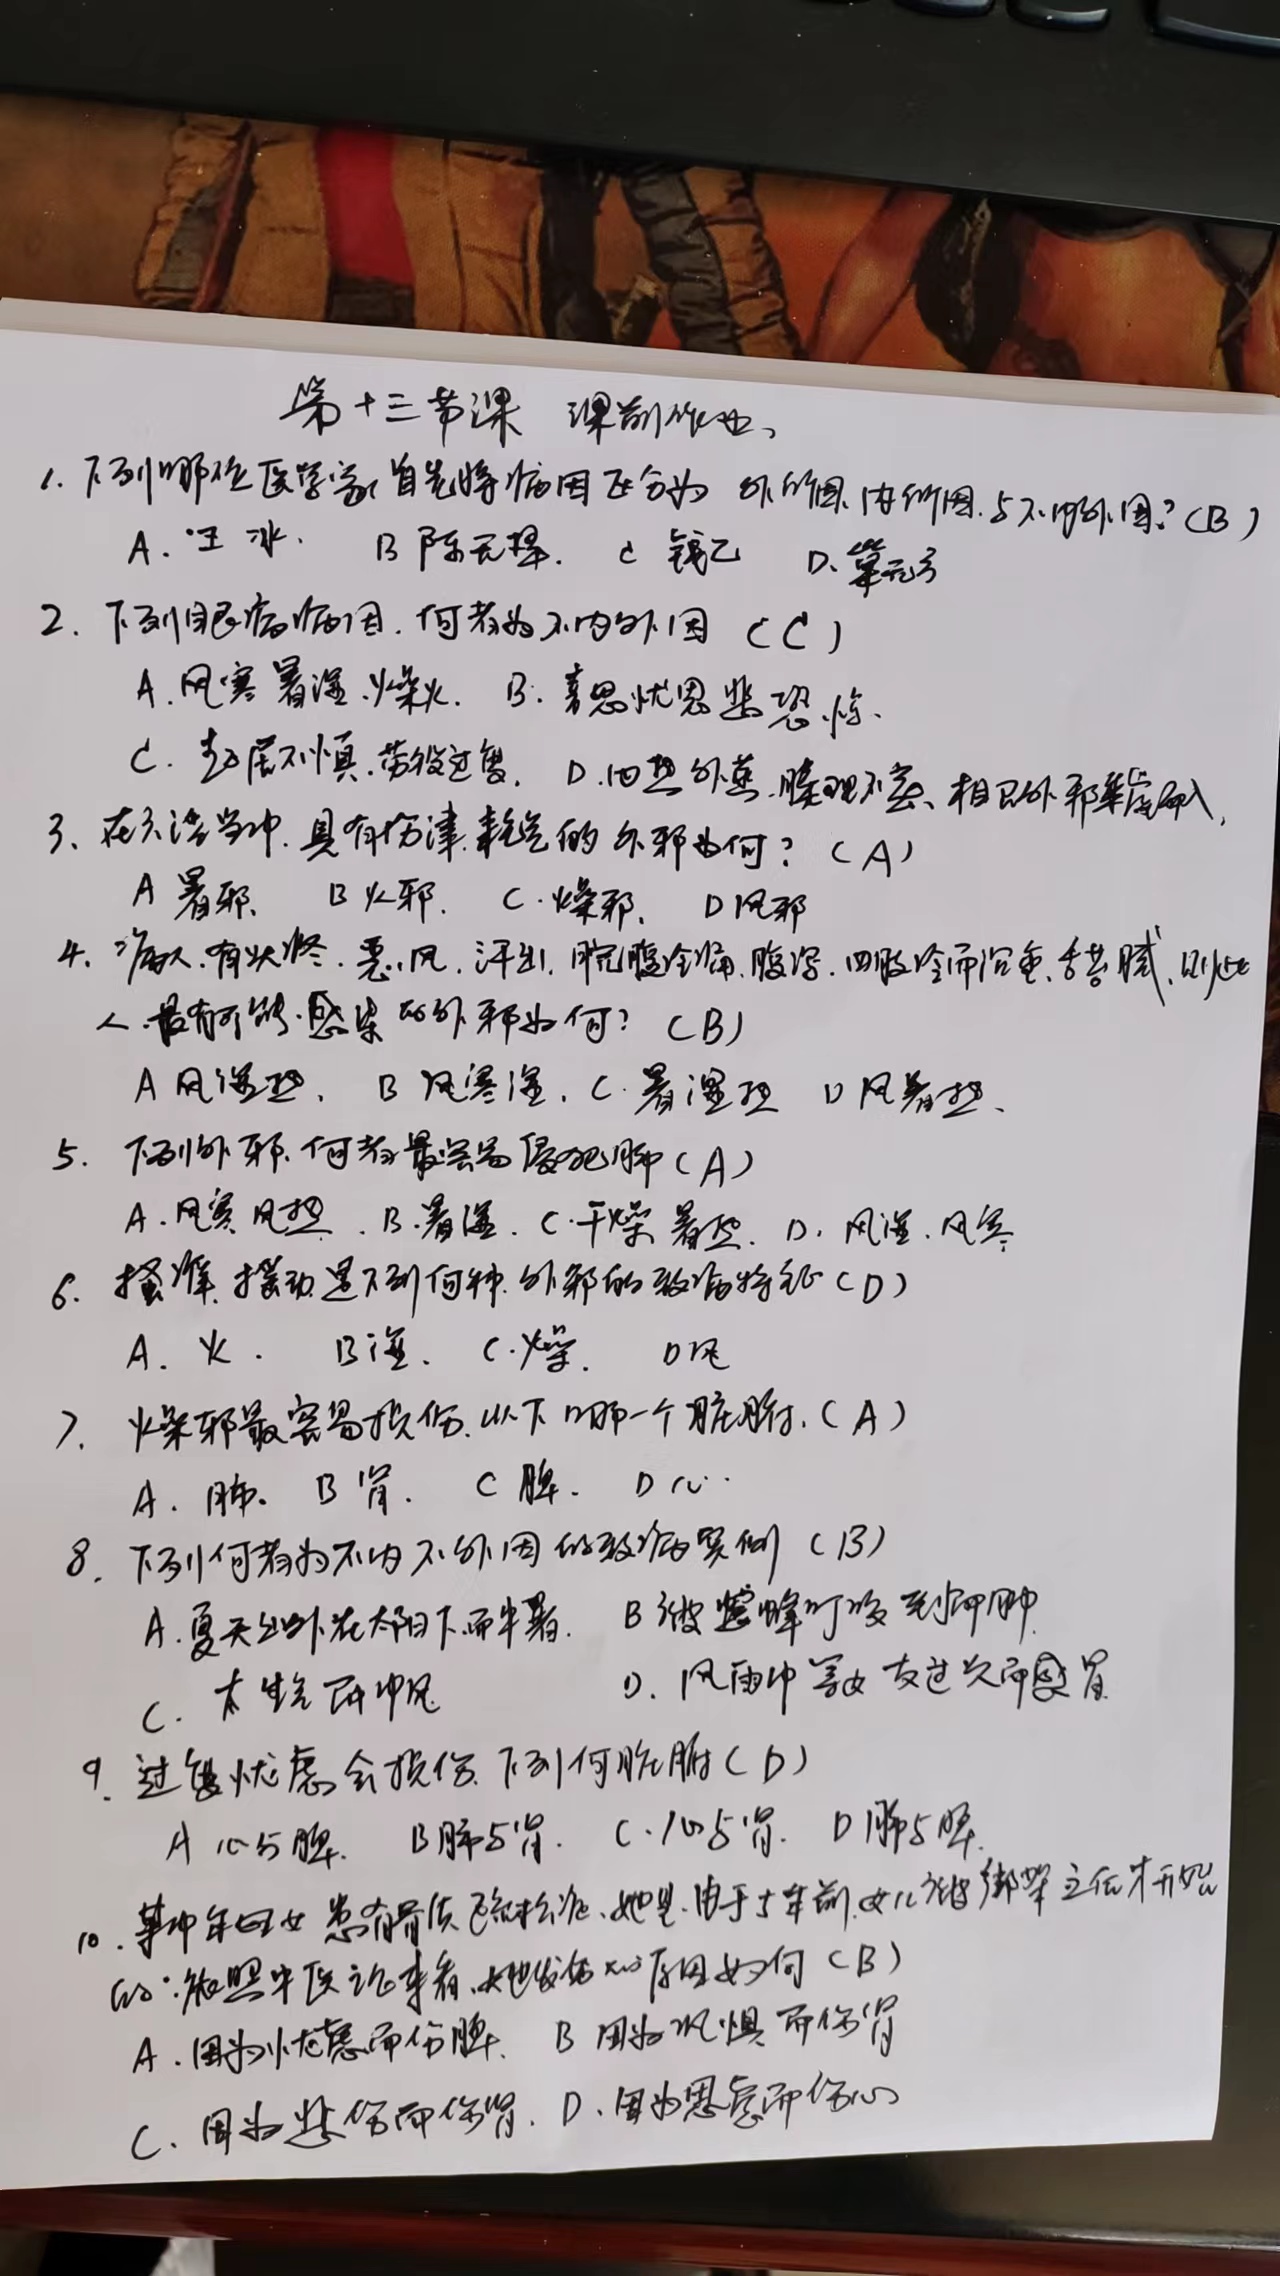 第十三节课 课前作业、
1. 下列哪位医学家首先将病因区分为 外所因、内所因、与不内外因?(B)
A. 王冰. B 陈无择. C 钱乙 D.巢元方
2. 下列眼病病因.何者为不内外因 (C)
A.风寒暑湿燥火. B. 喜思忧思悲恐惊.
C. 起居不慎.劳役过度. D.内热外蒸.腠理不密、相召外邪乘虚而入,
3、在六淫当中.具有伤津耗气的外邪为何? (A)
A 暑邪. B火邪. C.燥邪. D风邪
4、病人.有头疼.恶风.汗出.脘腹冷痛.腹泻.四肢冷而沉重.舌苔腻.则此
人.最有可能感染的外邪为何? (B)
A 风湿热. B 风寒湿. C.暑湿热 D风暑热、
5. 下列外邪.何者最容易侵犯肺(A)
A.风寒风热. B.暑湿. C.干燥暑热. D. 风湿.风寒
6. 搔痒.摇动.是下列何种外邪的致病特征(D)
A. 火. B湿. C.燥. D风
7. 燥邪最容易损伤.以下哪一个脏腑.(A)
A. 肺. B肾. C脾. D心.
8. 下列何者为不内不外因的致病实例 (B)
A.夏天出外在太阳下而中暑. B 被蜜蜂叮咬到而肿.
C. 太生气而中风 D. 风雨中等女友过久而感冒
9. 过度忧虑会损伤.下列何脏腑(D)
A心与脾. B肺与肾. C.心与肾. D肺与脾.
10. 某中年妇女患有骨质疏松症、她是.由于5年前.女儿被绑架之后才开始
的.依照中医论来看.她发病的原因如何(B)
A.因为忧虑而伤脾. B 因为恐惧而伤肾
C. 因为悲伤而伤肾. D.因为思虑而伤心